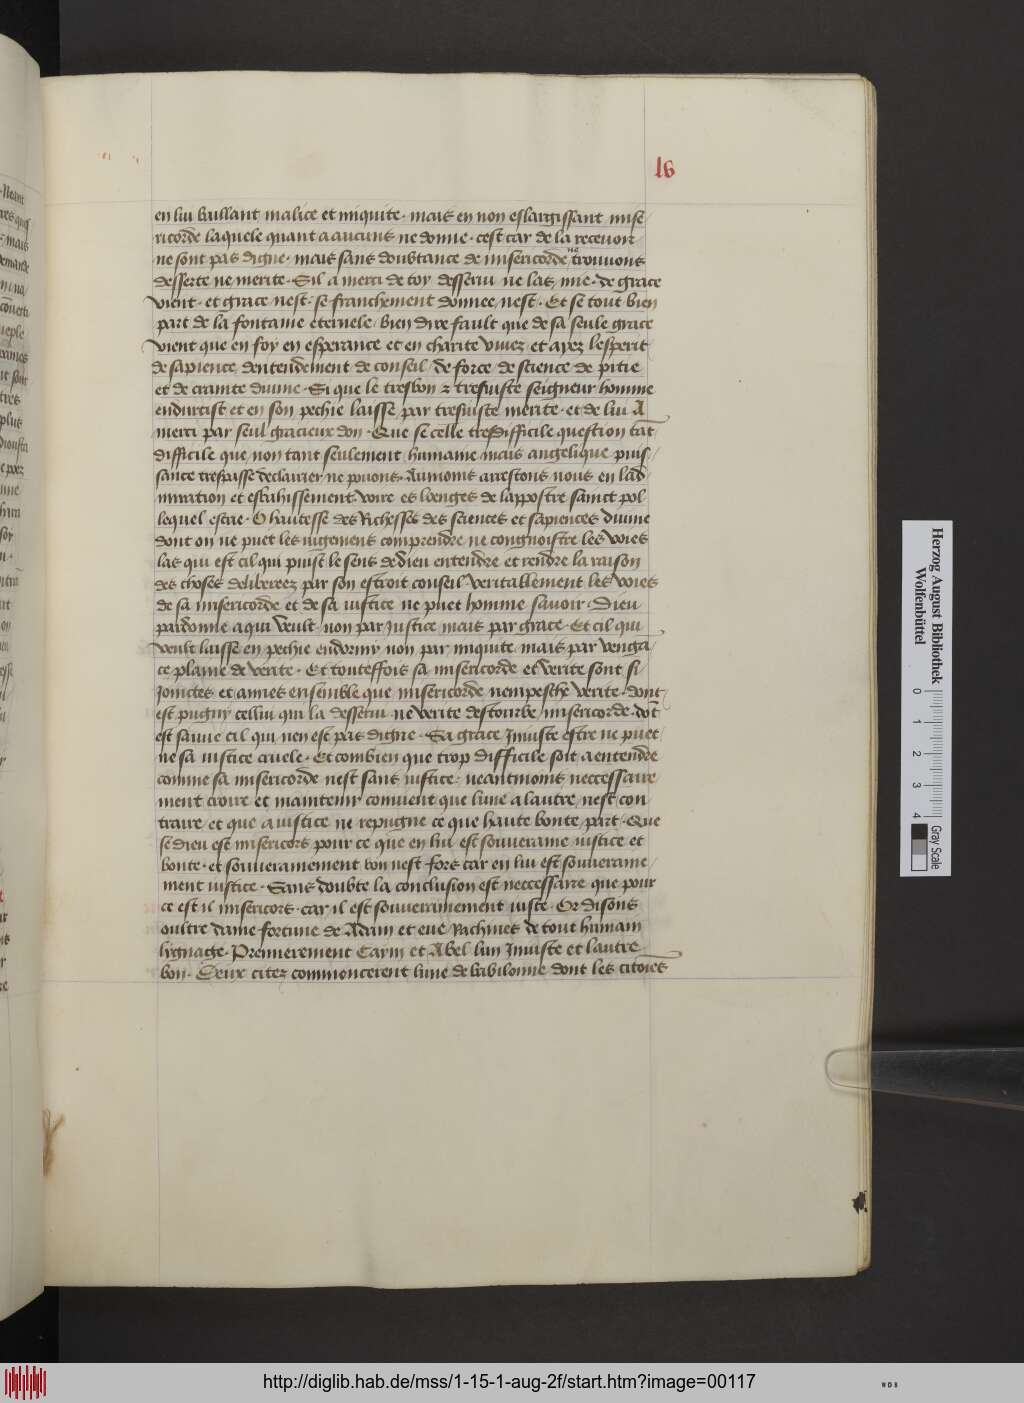 l6
en lui baillant malice et iniquite · mais en non eslargissant mise/
ricorde laquele quant a aucuns ne donne · cest car de la recevoir
ne sont pas digne · mais sans doubtance de misericorde ne trouvons
desserte ne merite · Sil a merci de toy desservi ne las mie · de grace
vient · et grace nest · se franchement donnee nest · Et se tout bien
part de la fontaine eternele / bien dire fault que de sa seule grace
vient que en foy en esperance et en charite vivez et ayez lesperit
de sapience dentendement de conseil / de force de science de pitie
et de crainte divine · Si que le tresbon et tresjuste seigneur homme
endurcist et en son pechie laisse par tresjuste merite · et de lui A
merci par seul gracieux don · Que se celle tresdifficile question tãt
difficile que non tant seulement humaine mais angelique puis/
sance trespasse declairier ne povons · Aumoins arrestons nous en lad
miration et esbahissement voire es loenges de lappostre saint pol
lequel escrie · O haultesse des Richesses des sciences et sapiences divine
dont on ne puet les jugemens comprendre ne congnoistre les voies
las qui est cil qui puist le sens de dieu entendre et rendre la raison
des choses deliberees par son estroit conseil veritablement les voies
de sa misericorde et de sa justice ne puet homme savoir · Dieu
pardonne a qui veult non par Justice mais par grace · Et cil qui
veult laisse en pechie endormy non par iniquite mais par venga/
ce plaine de verite · Et touteffois sa misericorde et verite sont si
Joinctes et amies ensemble que misericorde nempesche verite · dont
est pugny cellui qui la desservi ne verite destourbe misericorde · dõt
est sauve cil qui nen est pas digne · Sa grace Injuste estre ne puet
ne sa justice cruele · Et combien que trop difficile soit a entendre
comme sa misericorde nest sans justice · neantmoins neccessaire
ment croire et maintenir convient que lune a lautre nest con
traire et que a justice ne repugne ce que haute bonte part · Que
se dieu est misericors pour ce que en lui est souveraine justice et
bonte · et souverainement bon nest fors car en lui est souveraine/
ment justice · Sans doubte la conclusion est neccessaire que pour
ce est il misericors · car il est souverainement juste · Or disons
oultre dame fortune de Adam et eve Rachines de tout humain
lygnage · Premierement Cayn et Abel lun Injuste et lautre
bon · Deux citez commencerent lune de babilonne dont les citoiẽs
Herzog August Bibliothek
Wolfenbüttel
0 1 2 3 4
Gray Scale
http://diglib.hab.de/mss/1-15-1-aug-2f/start.htm?image=00117